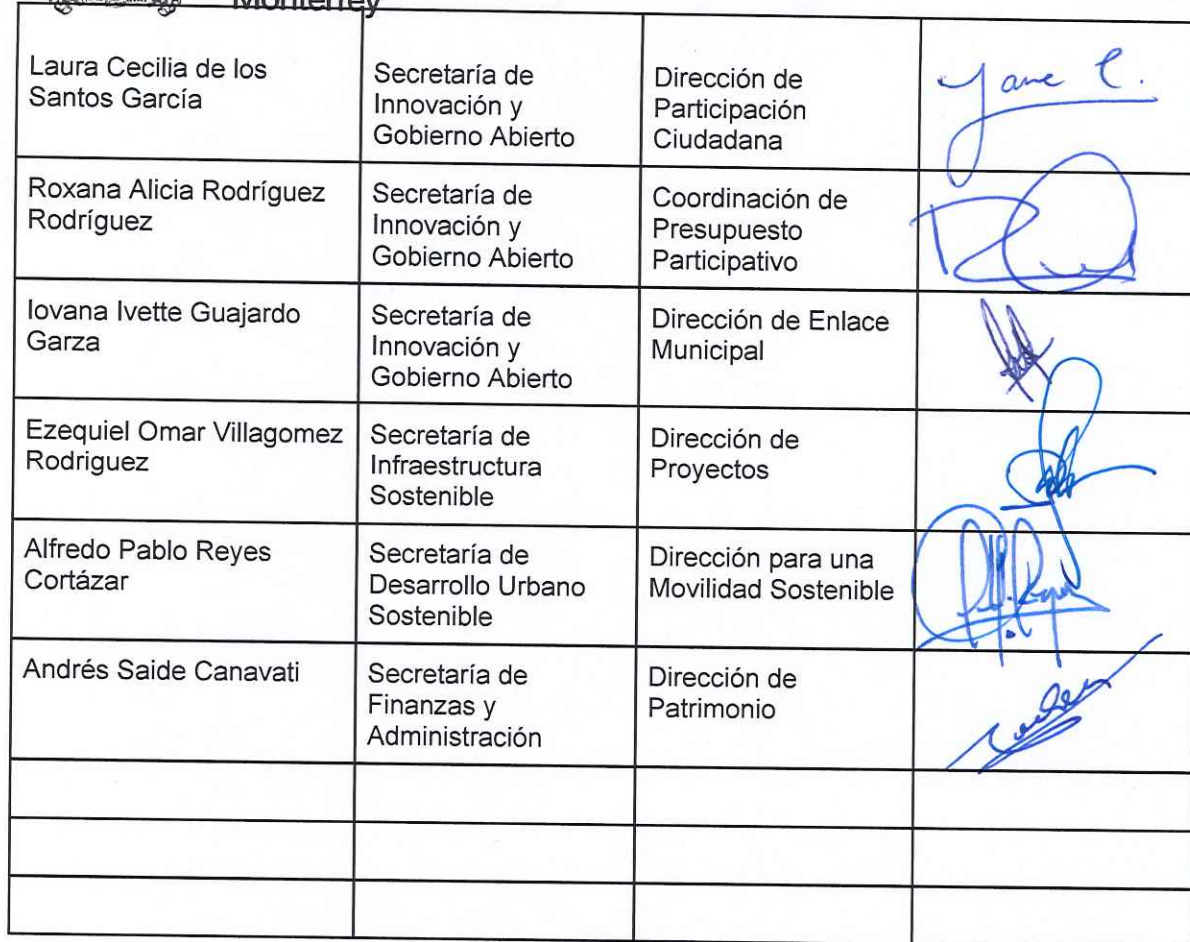 Monterrey
Laura Cecilia de los
Santos García
Secretaría de
Innovación y
Gobierno Abierto
Dirección de
Participación
Ciudadana
Roxana Alicia Rodríguez
Rodríguez
Secretaría de
Innovación y
Gobierno Abierto
Coordinación de
Presupuesto
Participativo
Iovana Ivette Guajardo
Garza
Secretaría de
Innovación y
Gobierno Abierto
Dirección de Enlace
Municipal
Ezequiel Omar Villagomez
Rodriguez
Secretaría de
Infraestructura
Sostenible
Dirección de
Proyectos
Alfredo Pablo Reyes
Cortázar
Secretaría de
Desarrollo Urbano
Sostenible
Dirección para una
Movilidad Sostenible
Andrés Saide Canavati
Secretaría de
Finanzas y
Administración
Dirección de
Patrimonio